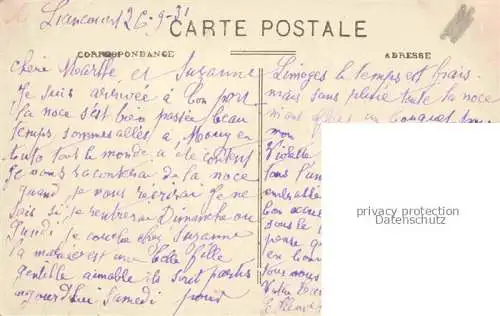 Liancourt 26-9-31
CARTE POSTALE
CORRESPONDANCE
ADRESSE
Chère Marthe et Suzanne
Je suis arrivée à bon port
la noce s'est bien passée beau
temps sommes allés à Mouy en
auto tout le monde a été content
Je vous raconterai de la noce
quand je vous récrirai Je ne
sais si je rentrerai Dimanche ou
Lundi je couche chez Suzanne
la mariée est une belle fille
gentille aimable ils sont partis
aujourd'hui Samedi pour
Limoges le temps est frais
mais sans pluie toute la noce
m'ont offert un bouquet
mon
Violette
tous
bon
sous le
pense
en bonne
vous
Votre
privacy protection
Datenschutz